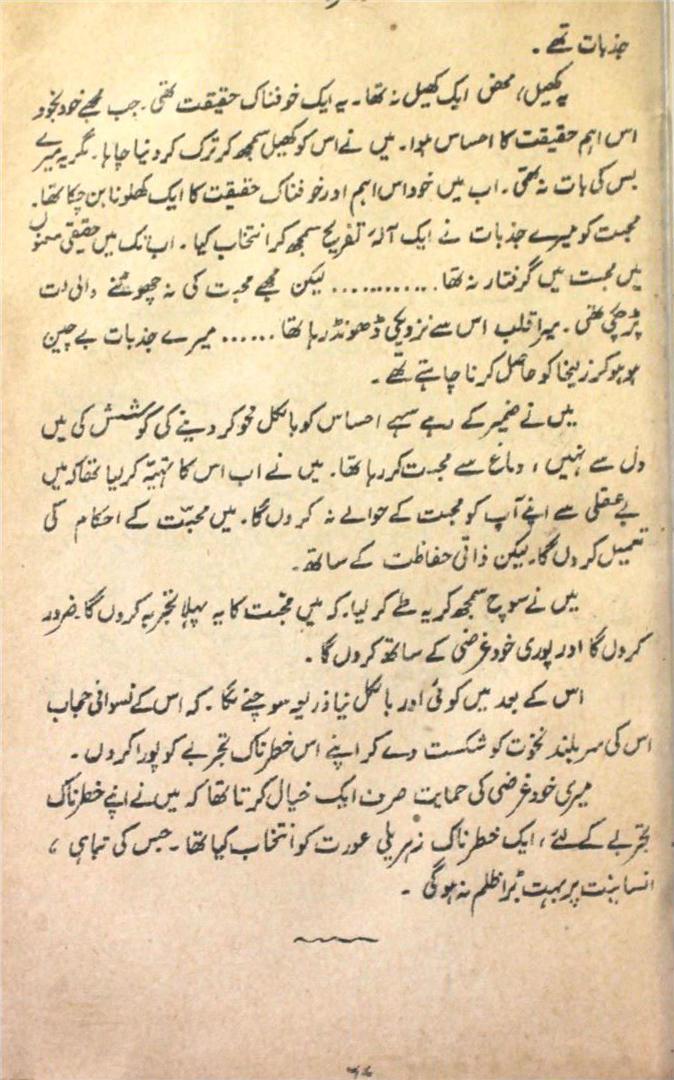 جذبات تھے۔
یہ کھیل، محض ایک کھیل نہ تھا۔ یہ ایک خوفناک حقیقت تھی۔ جب مجھے خود بخود
اس اہم حقیقت کا احساس ہوا۔ میں نے اس کو کھیل سمجھ کر ترک کر دینا چاہا۔ مگر یہ میرے
بس کی بات نہ تھی۔ اب میں خود اس اہم اور خوفناک حقیقت کا ایک کھلونا بن چکا تھا۔
محبت کو میرے جذبات نے ایک آلۂ تفریح سمجھ کر انتخاب کیا۔ اب تک میں حقیقی معنوں
میں محبت میں گرفتار نہ تھا ........... لیکن مجھے محبت کی نہ چھوٹنے والی لت
پڑ چکی تھی۔ میرا قلب اس سے نزدیکی ڈھونڈ رہا تھا ...... میرے جذبات بے چین
ہو ہو کر زلیخا کو حاصل کرنا چاہتے تھے۔
میں نے ضمیر کے رہے سہے احساس کو بالکل محو کر دینے کی کوشش کی میں
دل سے نہیں، دماغ سے محبت کر رہا تھا۔ میں نے اب اس کا تہیّہ کر لیا تھا کہ میں
بے عقلی سے اپنے آپ کو محبت کے حوالے نہ کروں گا۔ میں محبّت کے احکام کی
تعمیل کروں گا۔ لیکن ذاتی حفاظت کے ساتھ۔
میں نے سوچ سمجھ کر یہ طے کر لیا۔ کہ میں محبّت کا یہ پہلا تجربہ کروں گا۔ ضرور
کروں گا اور پوری خود غرضی کے ساتھ کروں گا۔
اس کے بعد میں کوئی اور بالکل نیا ذریعہ سوچنے لگا۔ کہ اس کے نسوانی حجاب
اس کی سربلند نخوت کو شکست دے کر اپنے اس خطرناک تجربے کو پورا کروں۔
میری خود غرضی کی حمایت صرف ایک خیال کرتا تھا کہ میں نے اپنے خطرناک
تجربے کے لئے، ایک خطرناک زہریلی عورت کو انتخاب کیا تھا۔ جس کی تباہی،
انسانیت پر بہت بڑا ظلم نہ ہوگی۔